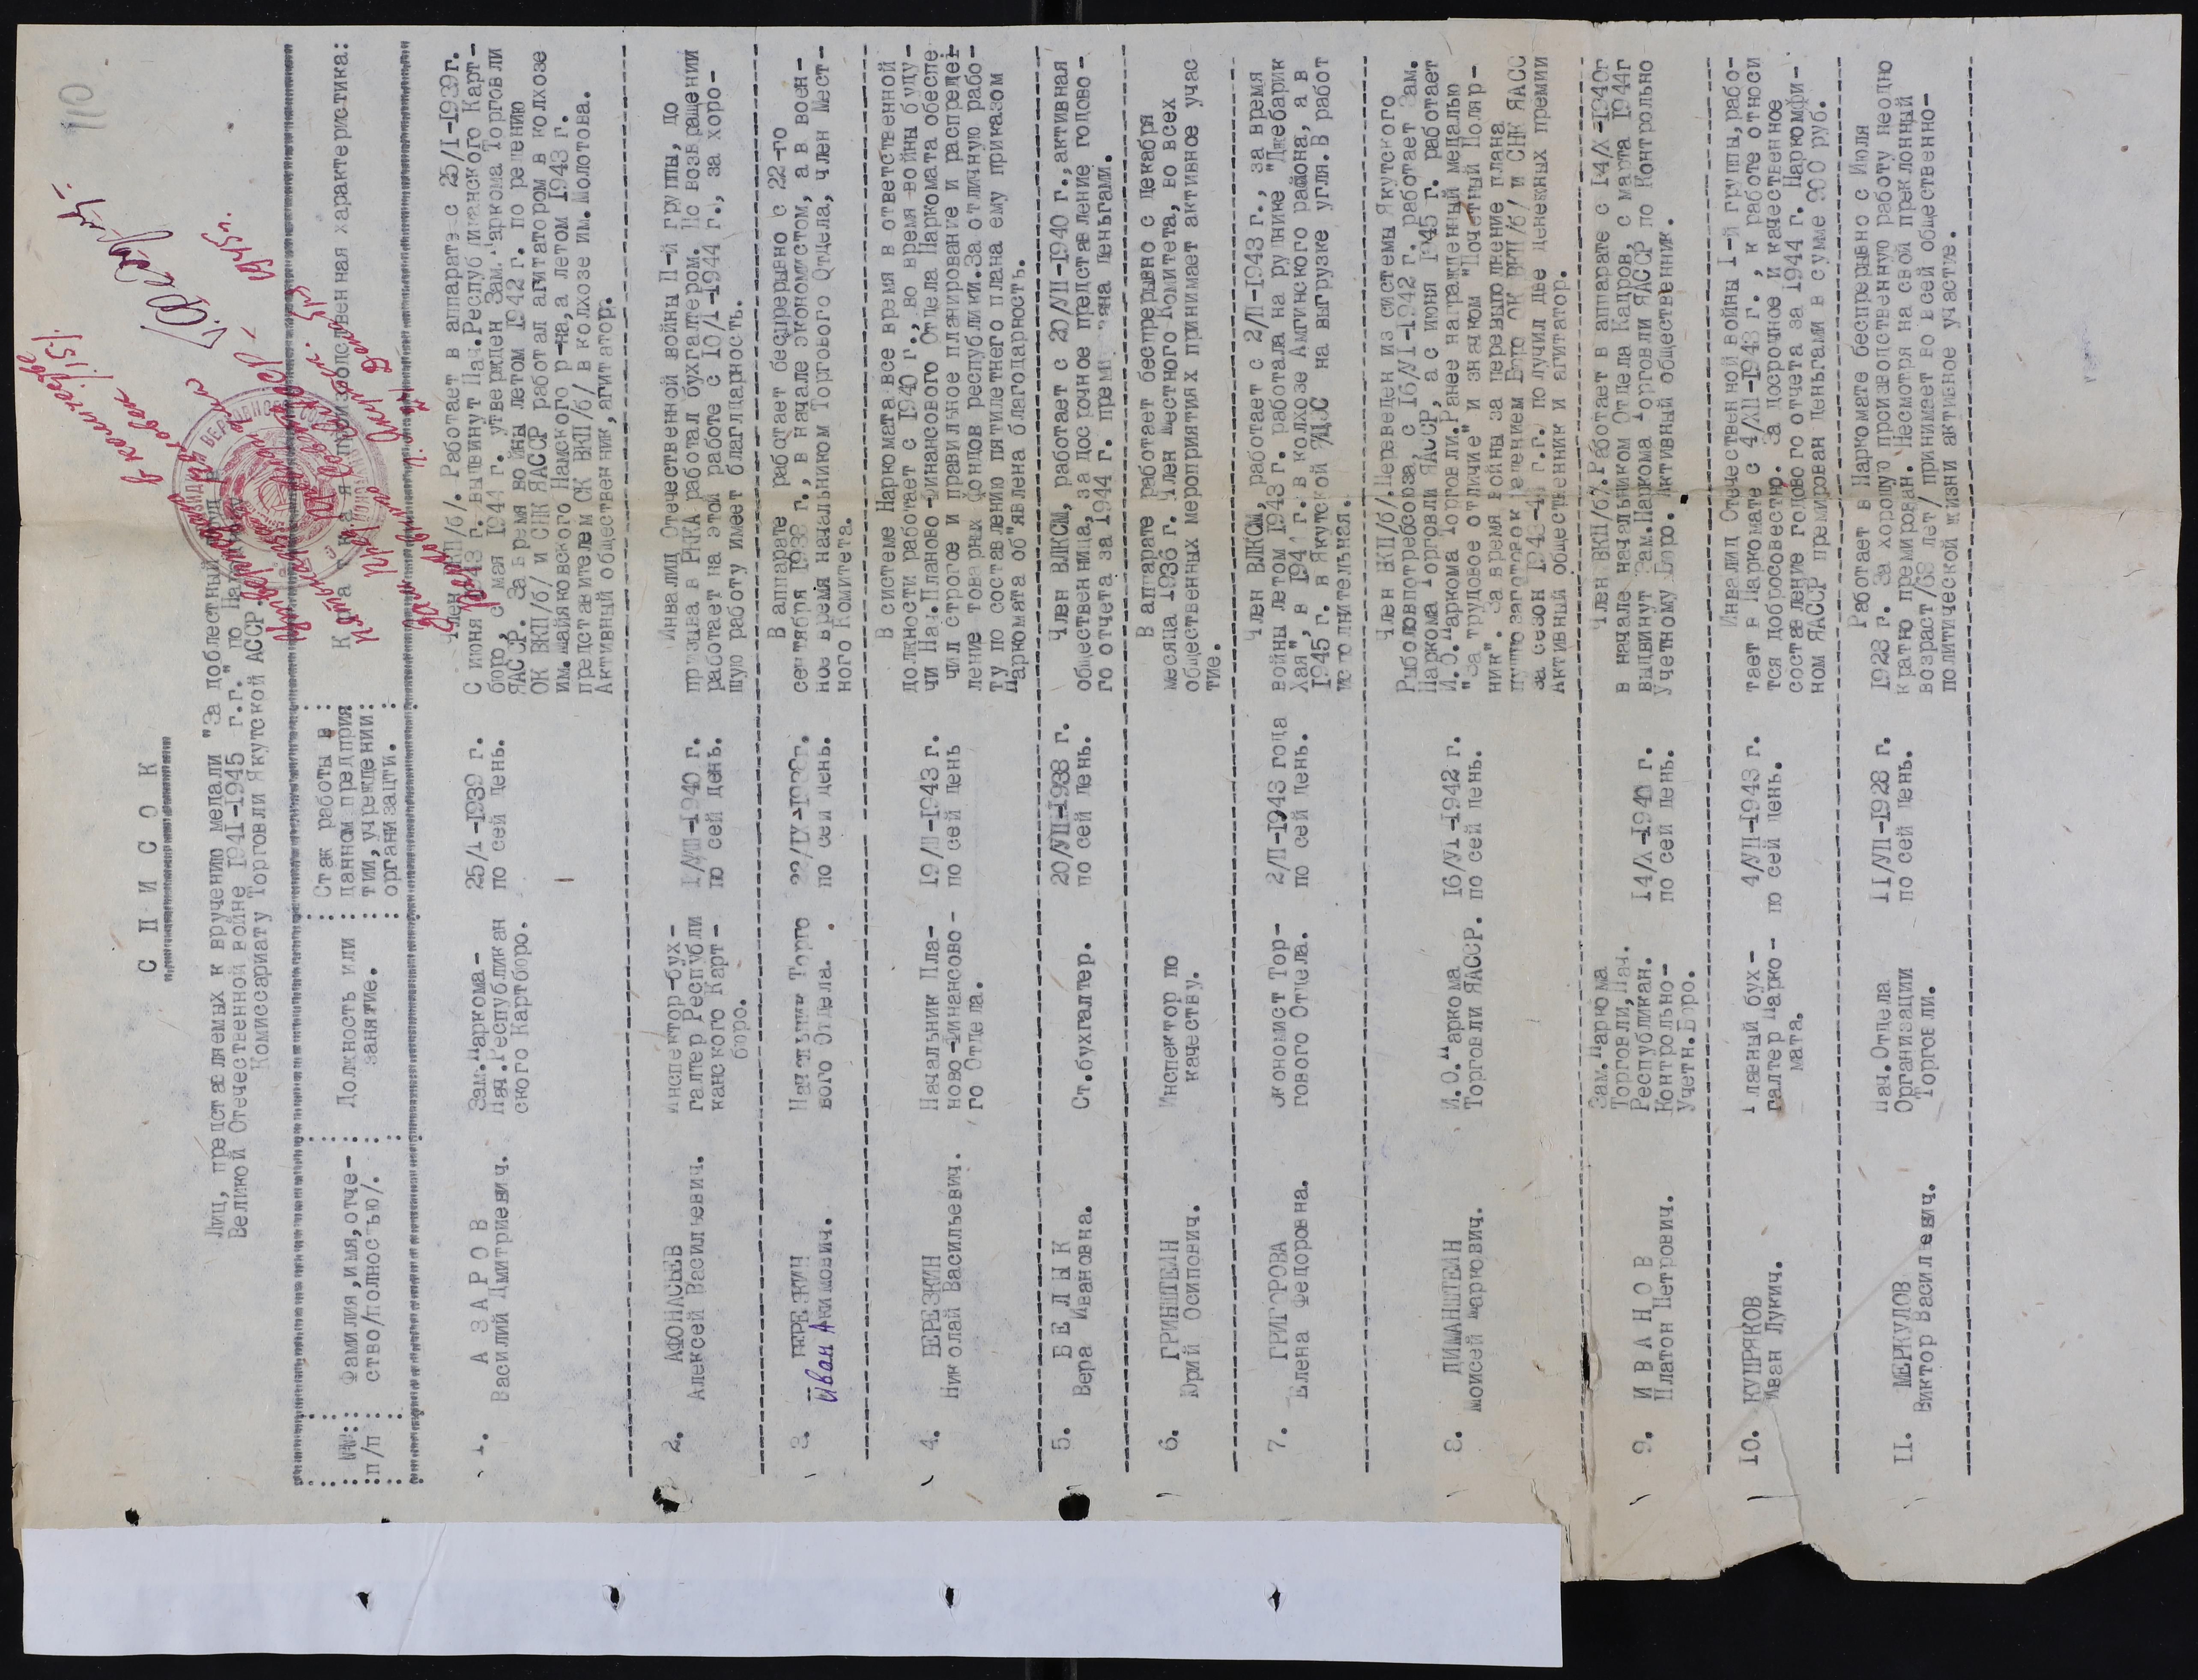 110
С П И С О К
Лиц, представляемых к вручению медали "За доблестный труд в
Великой Отечественной войне 1941-1945 г.г." по Народному
Комиссариату Торговли Якутской АССР.
№№ п/п
Фамилия, имя, отче-
ство/полностью/.
Должность или
занятие.
Стаж работы в
данном предприя
тии, учреждении
организации.
Краткая производственная характеристика:
1.
А З А Р О В
Василий Дмитриевич.
Зам.Наркома-
Нач.Республикан
ского Картбюро.
25/I-1939 г.
по сей день.
Член ВКП/б/. Работает в аппарате с 25/I-1939г.
С июня 1943 г. выдвинут Нач.Республиканского Карт-
бюро, с мая 1944 г. утвержден Зам.Наркома Торговли
ЯАССР. За время войны летом 1942 г. по решению
ОК ВКП/б/ и СНК ЯАССР работал агитатором в колхозе
им.Маяковского Намского р-на, а летом 1943 г.
представителем ОК ВКП/б/ в колхозе им.Молотова.
Активный общественник, агитатор.
2.
АФОНАСЬЕВ
Алексей Васильевич.
Инспектор-бух-
галтер Республи
канского Карт-
бюро.
1/VIII-1940 г.
по сей день.
Инвалид Отечественной войны II-й группы, до
призыва в РККА работал бухгалтером. По возвращении
работает на этой работе с 10/I-1944 г., за хоро-
шую работу имеет благодарность.
3.
БЕРЕЗКИН
Иван Акимович.
Начальник Торго
вого Отдела.
22/IX-1938г.
по сей день.
В аппарате работает беспрерывно с 22-го
сентября 1938 г., в начале экономистом, а в воен-
ное время начальником Торгового Отдела, член Мест-
ного Комитета.
4.
БЕРЕЗКИН
Николай Васильевич.
Начальник Пла-
ново-Финансово-
го Отдела.
19/II-1943 г.
по сей день
В системе Наркомата все время в ответственной
должности работает с 1940 г., во время войны буду-
чи Нач.Планово-Финансового Отдела Наркомата обеспе
чил строгое и правильное планирование и распреде-
ление товарных фондов республики. За отличную рабо-
ту по составлению пятилетнего плана ему приказом
Наркомата об"явлена благодарность.
5.
Б Е Л Ы К
Вера Ивановна.
Ст.бухгалтер.
20/VII-1938 г.
по сей день.
Член ВЛКСМ, работает с 20/VII-1940 г., активная
общественница, за досрочное представление годово-
го отчета за 1944 г. премирована деньгами.
6.
ГРИНШТЕЙН
Юрий Осипович.
Инспектор по
качеству.
В аппарате работает беспрерывно с декабря
месяца 1936 г. Член Местного Комитета, во всех
общественных мероприятиях принимает активное учас
тие.
7.
ГРИГОРОВА
Елена Федоровна.
Экономист Тор-
гового Отдела.
2/II-1943 года
по сей день.
Член ВЛКСМ, работает с 2/II-1943 г., за время
войны летом 1943 г. работала на руднике "Джебарик
Хая", в 1944 г. в колхозе Амгинского района, а в
1945 г. в Якутской ЦЭС на выгрузке угля. В работ
исполнительная.
8.
ДИМАНШТЕЙН
Моисей Маркович.
И.О.Наркома
Торговли ЯАССР.
16/VI-1942 г.
по сей день.
Член ВКП/б/. Переведен из системы Якутского
Рыболовпотребсоюза, с 16/VI-1942 г. работает Зам.
Наркома Торговли ЯАССР, а с июня 1945 г. работает
И.О.Наркома Торговли. Ранее награжденный медалью
"За трудовое отличие" и значком "Почетный Поляр-
ник". За время войны за перевыполнение плана
пушнозаготовок решением Бюро ОК ВКП/б/ и СНК ЯАСС
за сезон 1943-44 г.г. получил две денежных премии
Активный общественник и агитатор.
9.
И В А Н О В
Платон Петрович.
Зам.Наркома
Торговли, Нач.
Республикан.
Контрольно-
Учетн.Бюро.
14/X-1940 г.
по сей день.
Член ВКП/б/. Работает в аппарате с 14/X-1940г
в начале начальником Отдела Кадров, с марта 1944г
выдвинут Зам.Наркома Торговли ЯАССР по Контрольно
Учетному Бюро. Активный общественник.
10.
КУПРЯКОВ
Иван Лукич.
Главный бух-
галтер Нарко-
мата.
4/VII-1943 г.
по сей день.
Инвалид Отечественной войны I-й группы, рабо-
тает в Наркомате с 4/VII-1943 г., к работе относи
тся добросовестно. За досрочное и качественное
составление годового отчета за 1944 г. Наркомфи-
ном ЯАССР премирован деньгами в сумме 900 руб.
11.
МЕРКУЛОВ
Виктор Васильевич.
Нач.Отдела
Организации
Торговли.
11/VII-1928 г.
по сей день.
Работает в Наркомате беспрерывно с Июля
1928 г. За хорошую производственную работу неодно
кратно премирован. Несмотря на свой преклонный
возраст /68 лет/ принимает во всей общественно-
политической жизни активное участие.